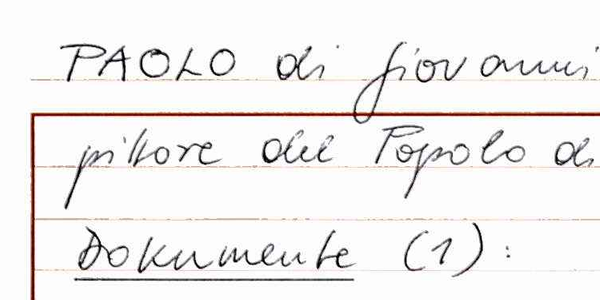 PAOLO di Giovanni
pittore del Popolo di
Dokumente (1):